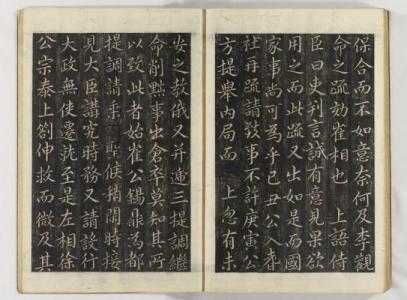 保合而不如意奈何及李觀
命之疏劾崔相也 上語侍
臣曰史判言誠有意見果欲
用之而此疏又出如是而國
家事尚可為乎己丑公入耆
社再疏請致事不許庚寅公
方提舉內局而 上忽有未
安之教俄又并遞三提調繼
命削黜事出倉卒莫知其所
以致此者始崔公錫鼎為都
提調請承 候稍間時接
見大臣講究時務又請設行
大政無使遷就至是左相徐
公宗泰上劄伸救而微及其